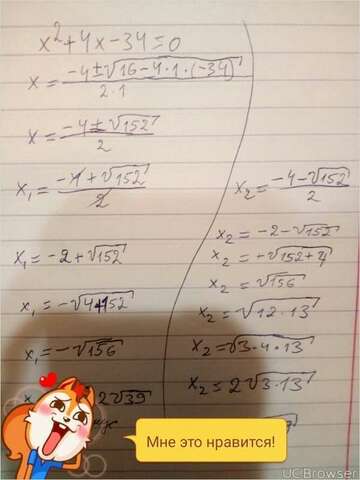 x²+4x-34=0
x = (-4±√(16-4·1·(-34)))/(2·1)
x = (-4±√152)/2
x₁ = (-4+√152)/2
x₁ = -2+√152
x₁ = -√(4+152)
x₁ = -√156
2√39
x₂ = (-4-√152)/2
x₂ = -2-√152
x₂ = -√(152+4)
x₂ = √156
x₂ = √(12·13)
x₂ = √(3·4·13)
x₂ = 2√(3·13)
Мне это нравится!
UCBrowser